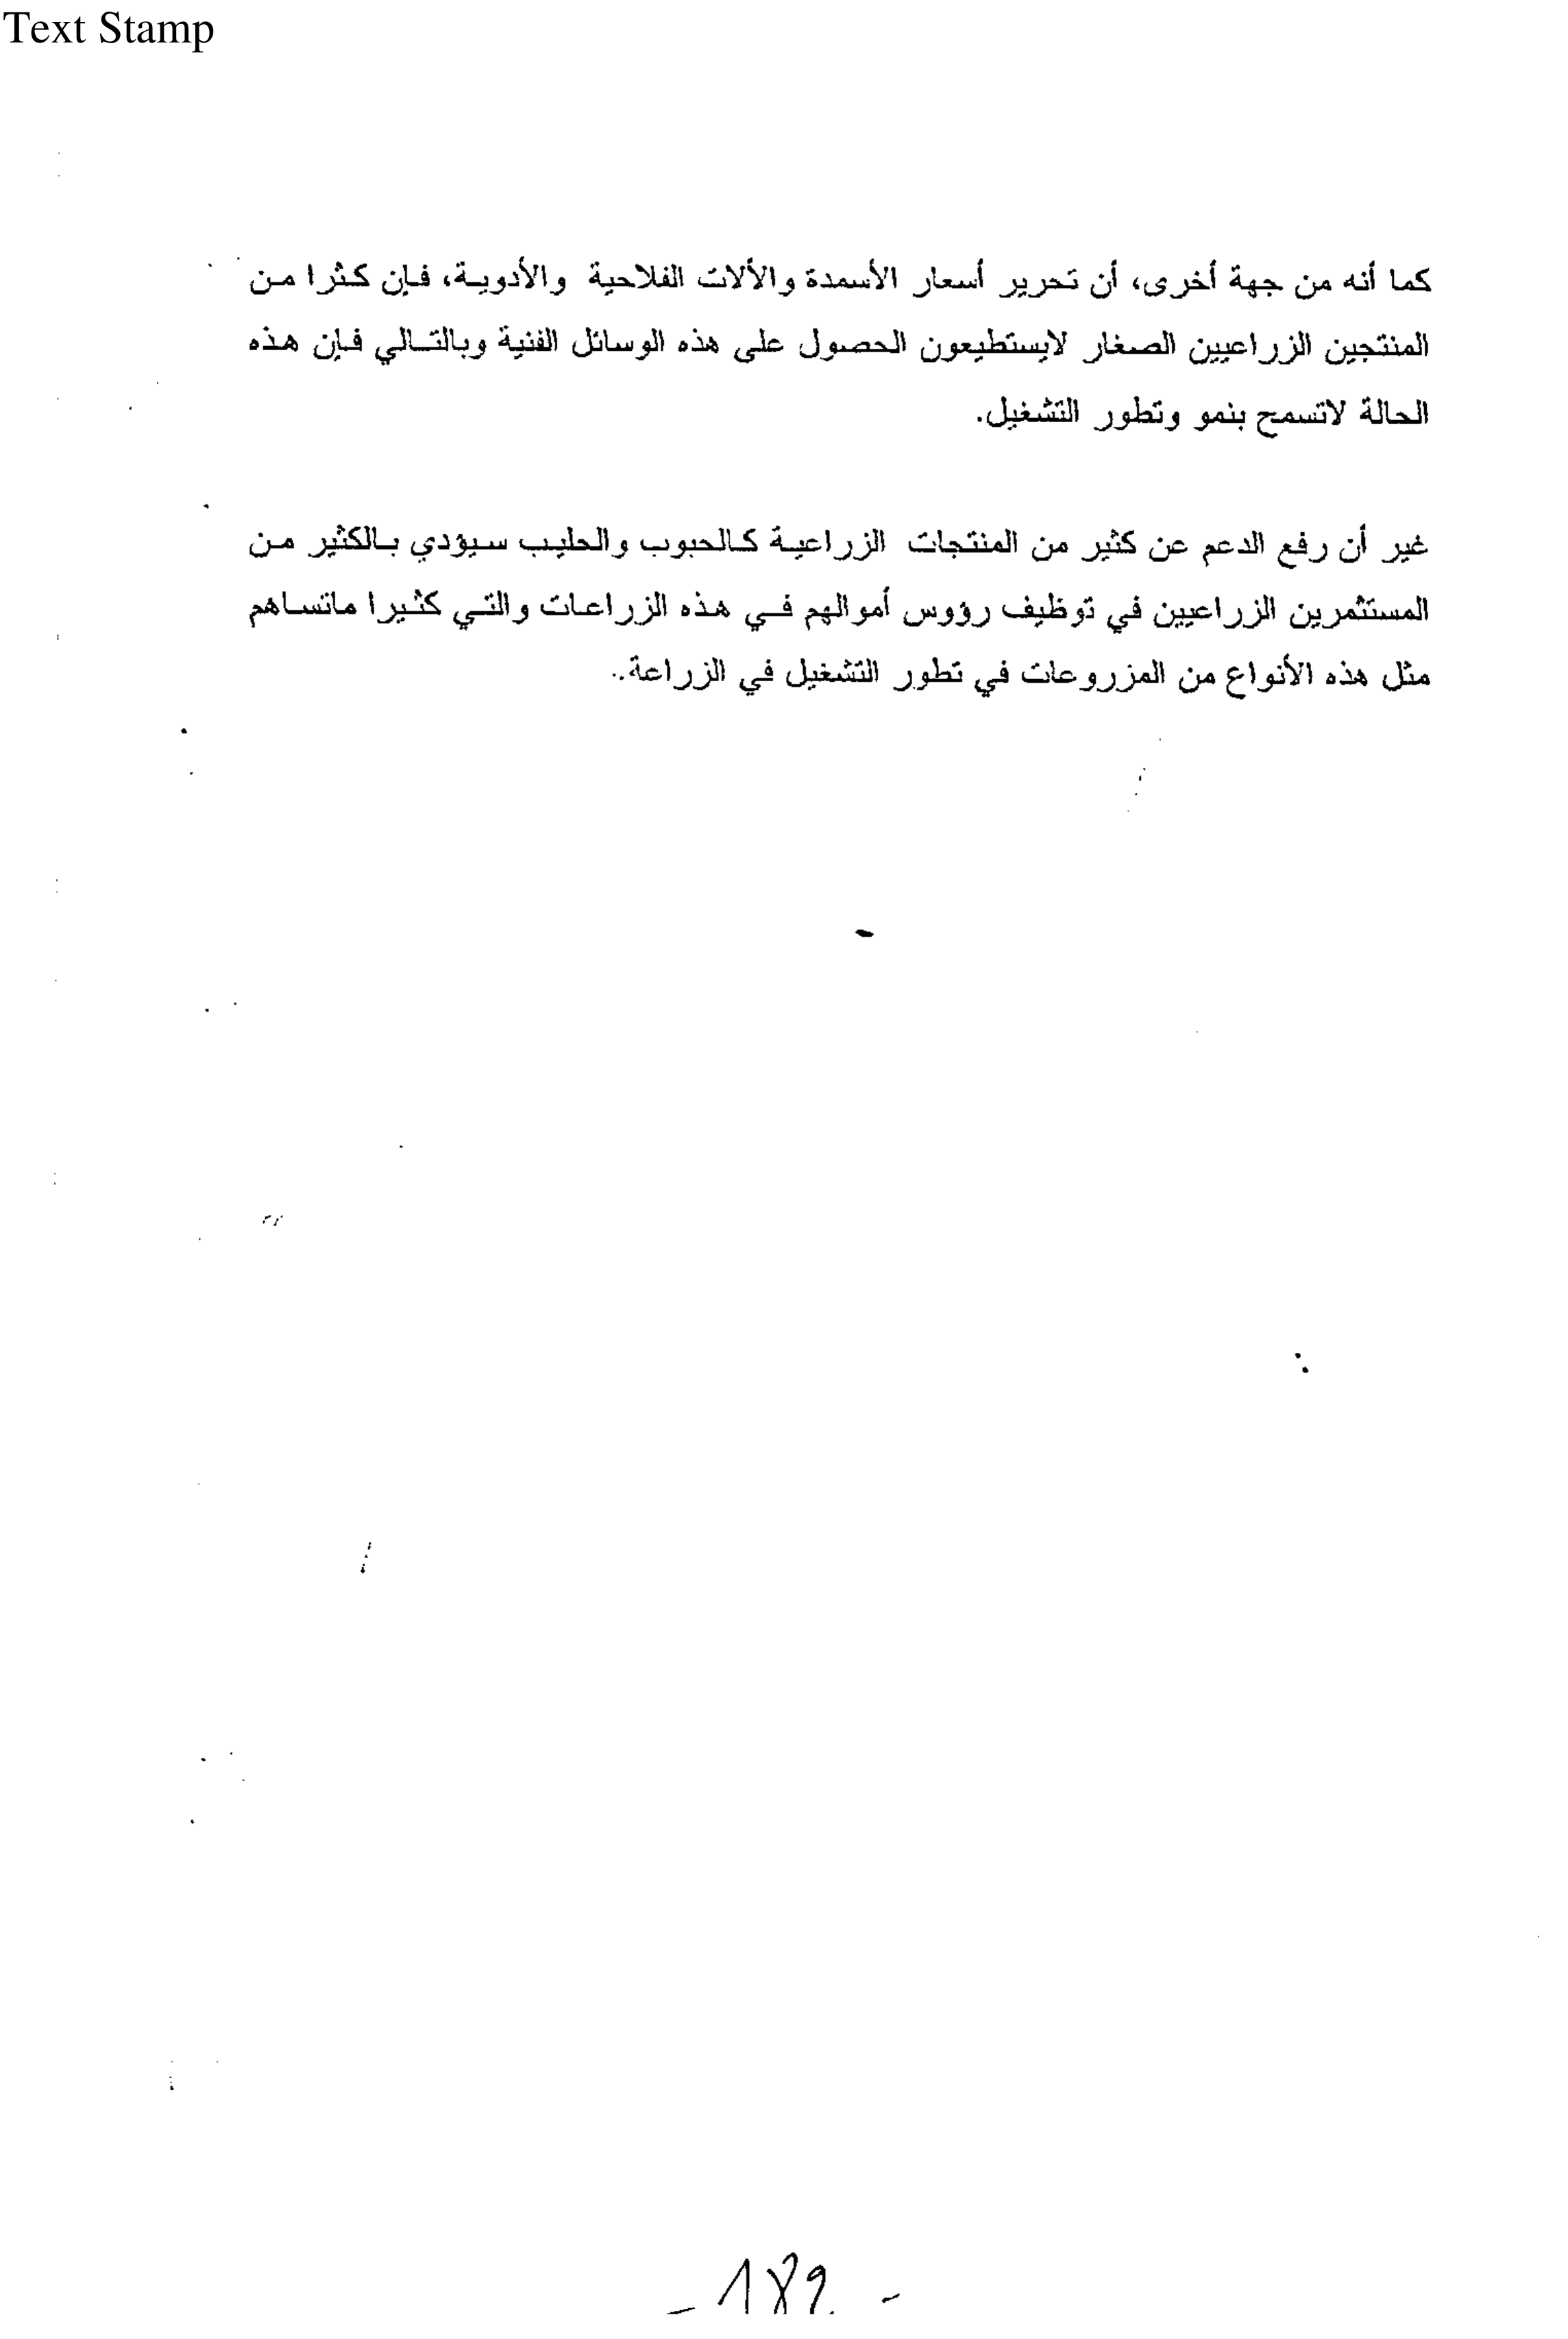 Text Stamp
كما أنه من جهة أخرى، أن تحرير أسعار الأسمدة والألات الفلاحية والأدوية، فإن كثرا من
المنتجين الزراعيين الصغار لايستطيعون الحصول على هذه الوسائل الفنية وبالتالي فإن هذه
الحالة لاتسمح بنمو وتطور التشغيل.
غير أن رفع الدعم عن كثير من المنتجات الزراعية كالحبوب والحليب سيؤدي بالكثير من
المستثمرين الزراعيين في توظيف رؤوس أموالهم في هذه الزراعات والتي كثيرا ماتساهم
مثل هذه الأنواع من المزروعات في تطور التشغيل في الزراعة..
- 189 -